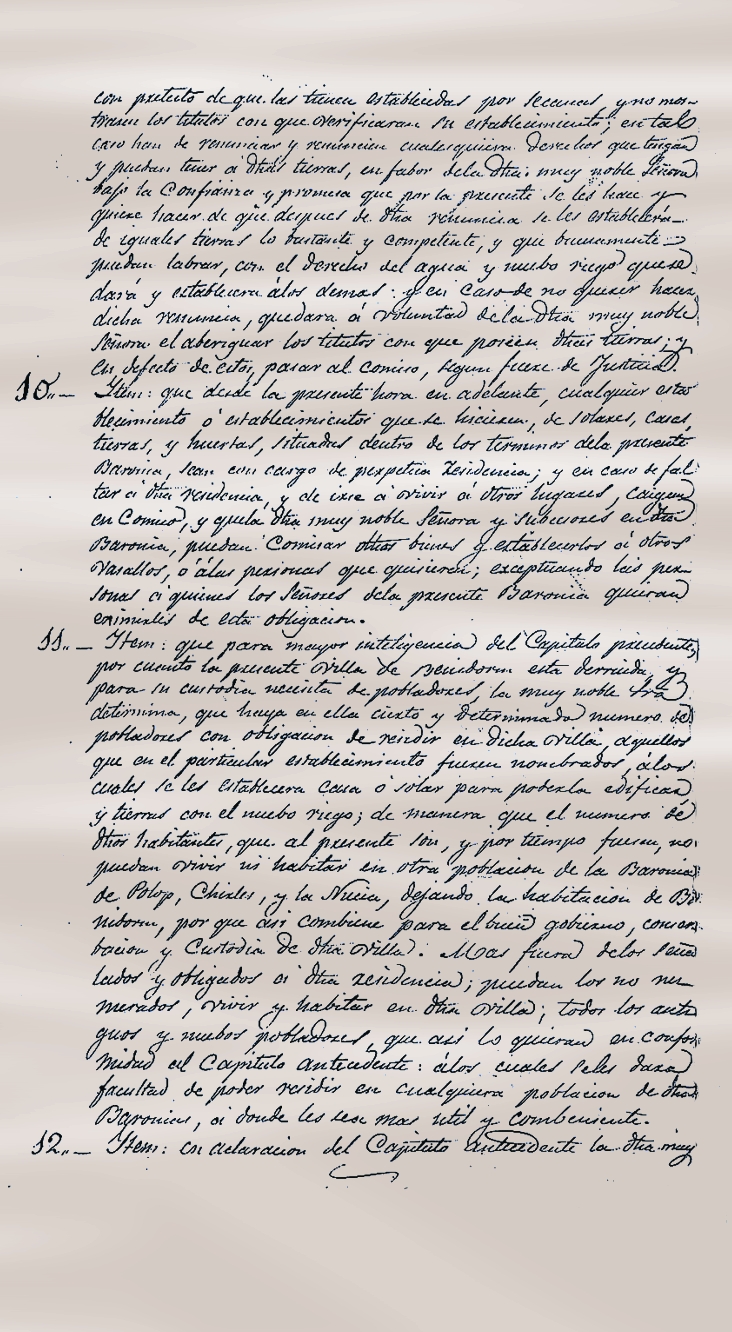 con pretexto de que las tienen establecidas por secanas y no mos-
traren los titulos con que verificaran su establecimiento; en tal
caso han de renunciar y renuncien cualesquiera derechos que tengan
y puedan tener á dthas tierras, en fabor dela dtha muy noble Señora
bajo la Confianza y promesa que por la presente se les hace y
quiere hacer de que despues de dtha renuncia se les establecerá
de iguales tierras lo bastante y competente, y que buenamente
puedan labrar, con el derecho del agua y nuebo riego que se
dará y establecera álos demas: y en caso de no querer hacer
dicha renuncia, quedara á voluntad de la dtha muy noble
Señora el aberiguar los titulos con que poseen dthas tierras; y
en defecto de estos, pasar al comiso, segun fuere de Justicia.
10.. — Item: que desde la presente hora en adelante, cualquier esta
blecimiento ó establecimientos que se hicieren, de solares, casas,
tierras, y huertas, situadas dentro de los terminos dela presente
Baronia, sean con cargo de perpetua residencia; y en caso de fal
tar á dtha residencia, y de irse á vivir á otros lugares, caigan
en Comiso, y que la dtha muy noble Señora y subcesores en dtha
Baronia, puedan Comisar dthos bienes y establecerlos á otros
Vasallos, ó álas personas que quisieren; exceptuando las per
sonas á quienes los Señores dela presente Baronia quieran
eximirles de esta obligacion.
11.. — Item: que para mayor inteligencia del Capitulo precedente,
por cuanto la presente Villa de Benidorm esta derruida, y
para su custodia necesita de pobladores, la muy noble Sra
determina, que haya en ella cierto y determinado numero de
pobladores con obligacion de residir en dicha Villa, aquellos
que en el particular establecimiento fueren nombrados, álos
cuales se les establecera casa ó solar para poderla edificar
y tierras con el nuebo riego; de manera que el numero de
dthos habitantes, que al presente son, y por tiempo fueren, no
puedan vivir ni habitar en otra poblacion de la Baronia
de Polop, Chirles, y la Nucia, dejando la habitacion de Be
nidorm, por que asi combiene para el buen gobierno, conser
bacion y Custodia de dtha Villa. Mas fuera delos Seña
lados y obligados á dtha residencia; puedan los no nu
merados, vivir y habitar en dtha Villa; todos los anti
guos y nuebos pobladores, que asi lo quieran en confor
midad al Capitulo antecedente: álos cuales seles dara
facultad de poder residir en cualquiera poblacion de dthas
Baronias, á donde les sea mas util y combeniente.
12.. — Item: en aclaracion del Capitulo antecedente la dtha muy